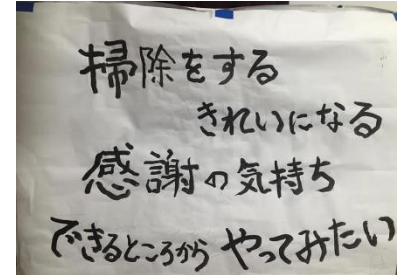 掃除をする
きれいになる
感謝の気持ち
できるところから やってみたい